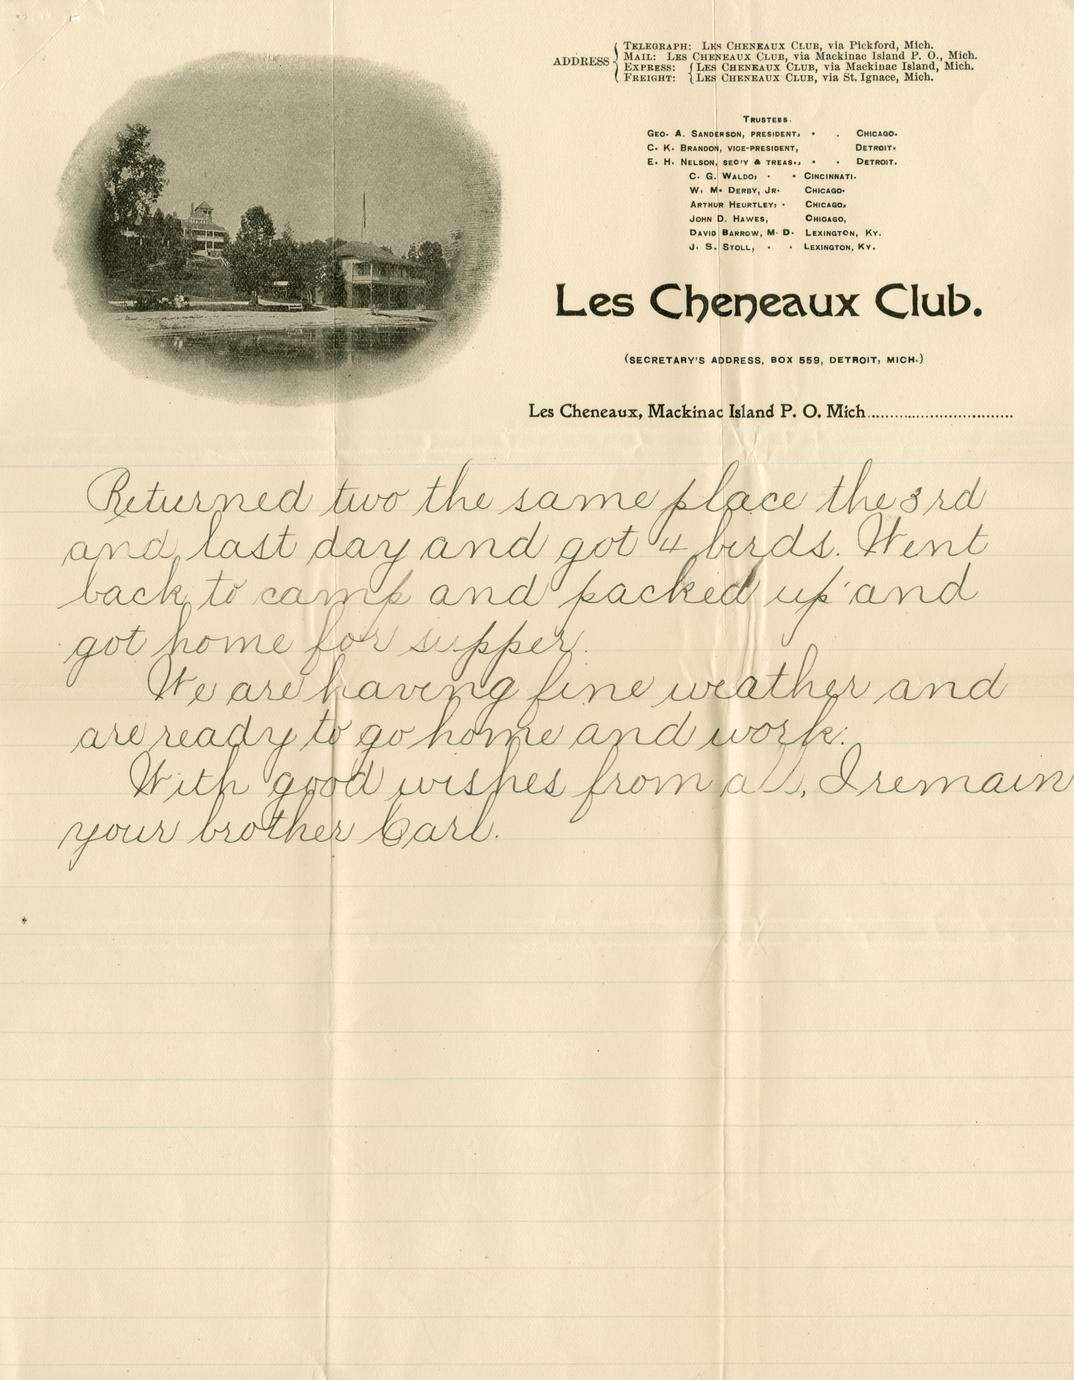 ADDRESS
TELEGRAPH: LES CHENEAUX CLUB, via Pickford, Mich.
MAIL: LES CHENEAUX CLUB, via Mackinac Island P. O., Mich.
EXPRESS: LES CHENEAUX CLUB, via Mackinac Island, Mich.
FREIGHT: LES CHENEAUX CLUB, via St. Ignace, Mich.
TRUSTEES.
GEO. A. SANDERSON, PRESIDENT, CHICAGO.
C. K. BRANDON, VICE-PRESIDENT, DETROIT.
E. H. NELSON, SEC'Y & TREAS., DETROIT.
C. G. WALDO, CINCINNATI.
W. M. DERBY, JR. CHICAGO.
ARTHUR HEURTLEY, CHICAGO,
JOHN D. HAWES, CHICAGO,
DAVID BARROW, M. D. LEXINGTON, KY.
J. S. STOLL, LEXINGTON, KY.
Les Cheneaux Club.
(SECRETARY'S ADDRESS, BOX 559, DETROIT, MICH.)
Les Cheneaux, Mackinac Island P. O. Mich
Returned two the same place the 3rd
and last day and got 4 birds. Went
back to camp and packed up and
got home for supper.
We are having fine weather and
are ready to go home and work.
With good wishes from all, I remain
your brother Carl.